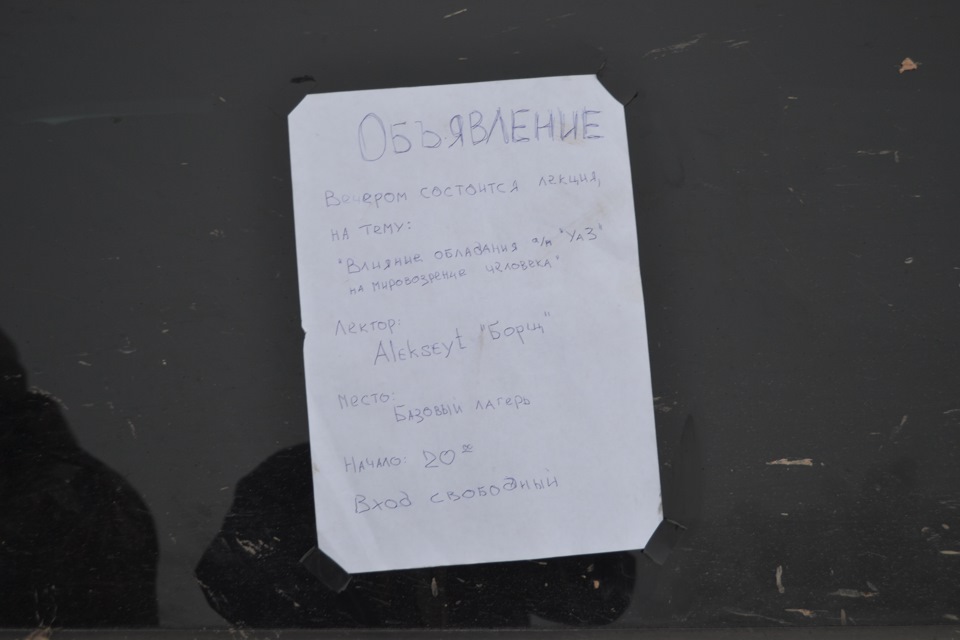 ОБЪЯВЛЕНИЕ
Вечером состоится лекция,
на тему:
"Влияние обладания а/м "УаЗ"
на мировозрение человека"
Лектор:
Alekseyt "Борщ"
Место:
Базовый лагерь
Начало: 20ºº
Вход свободный